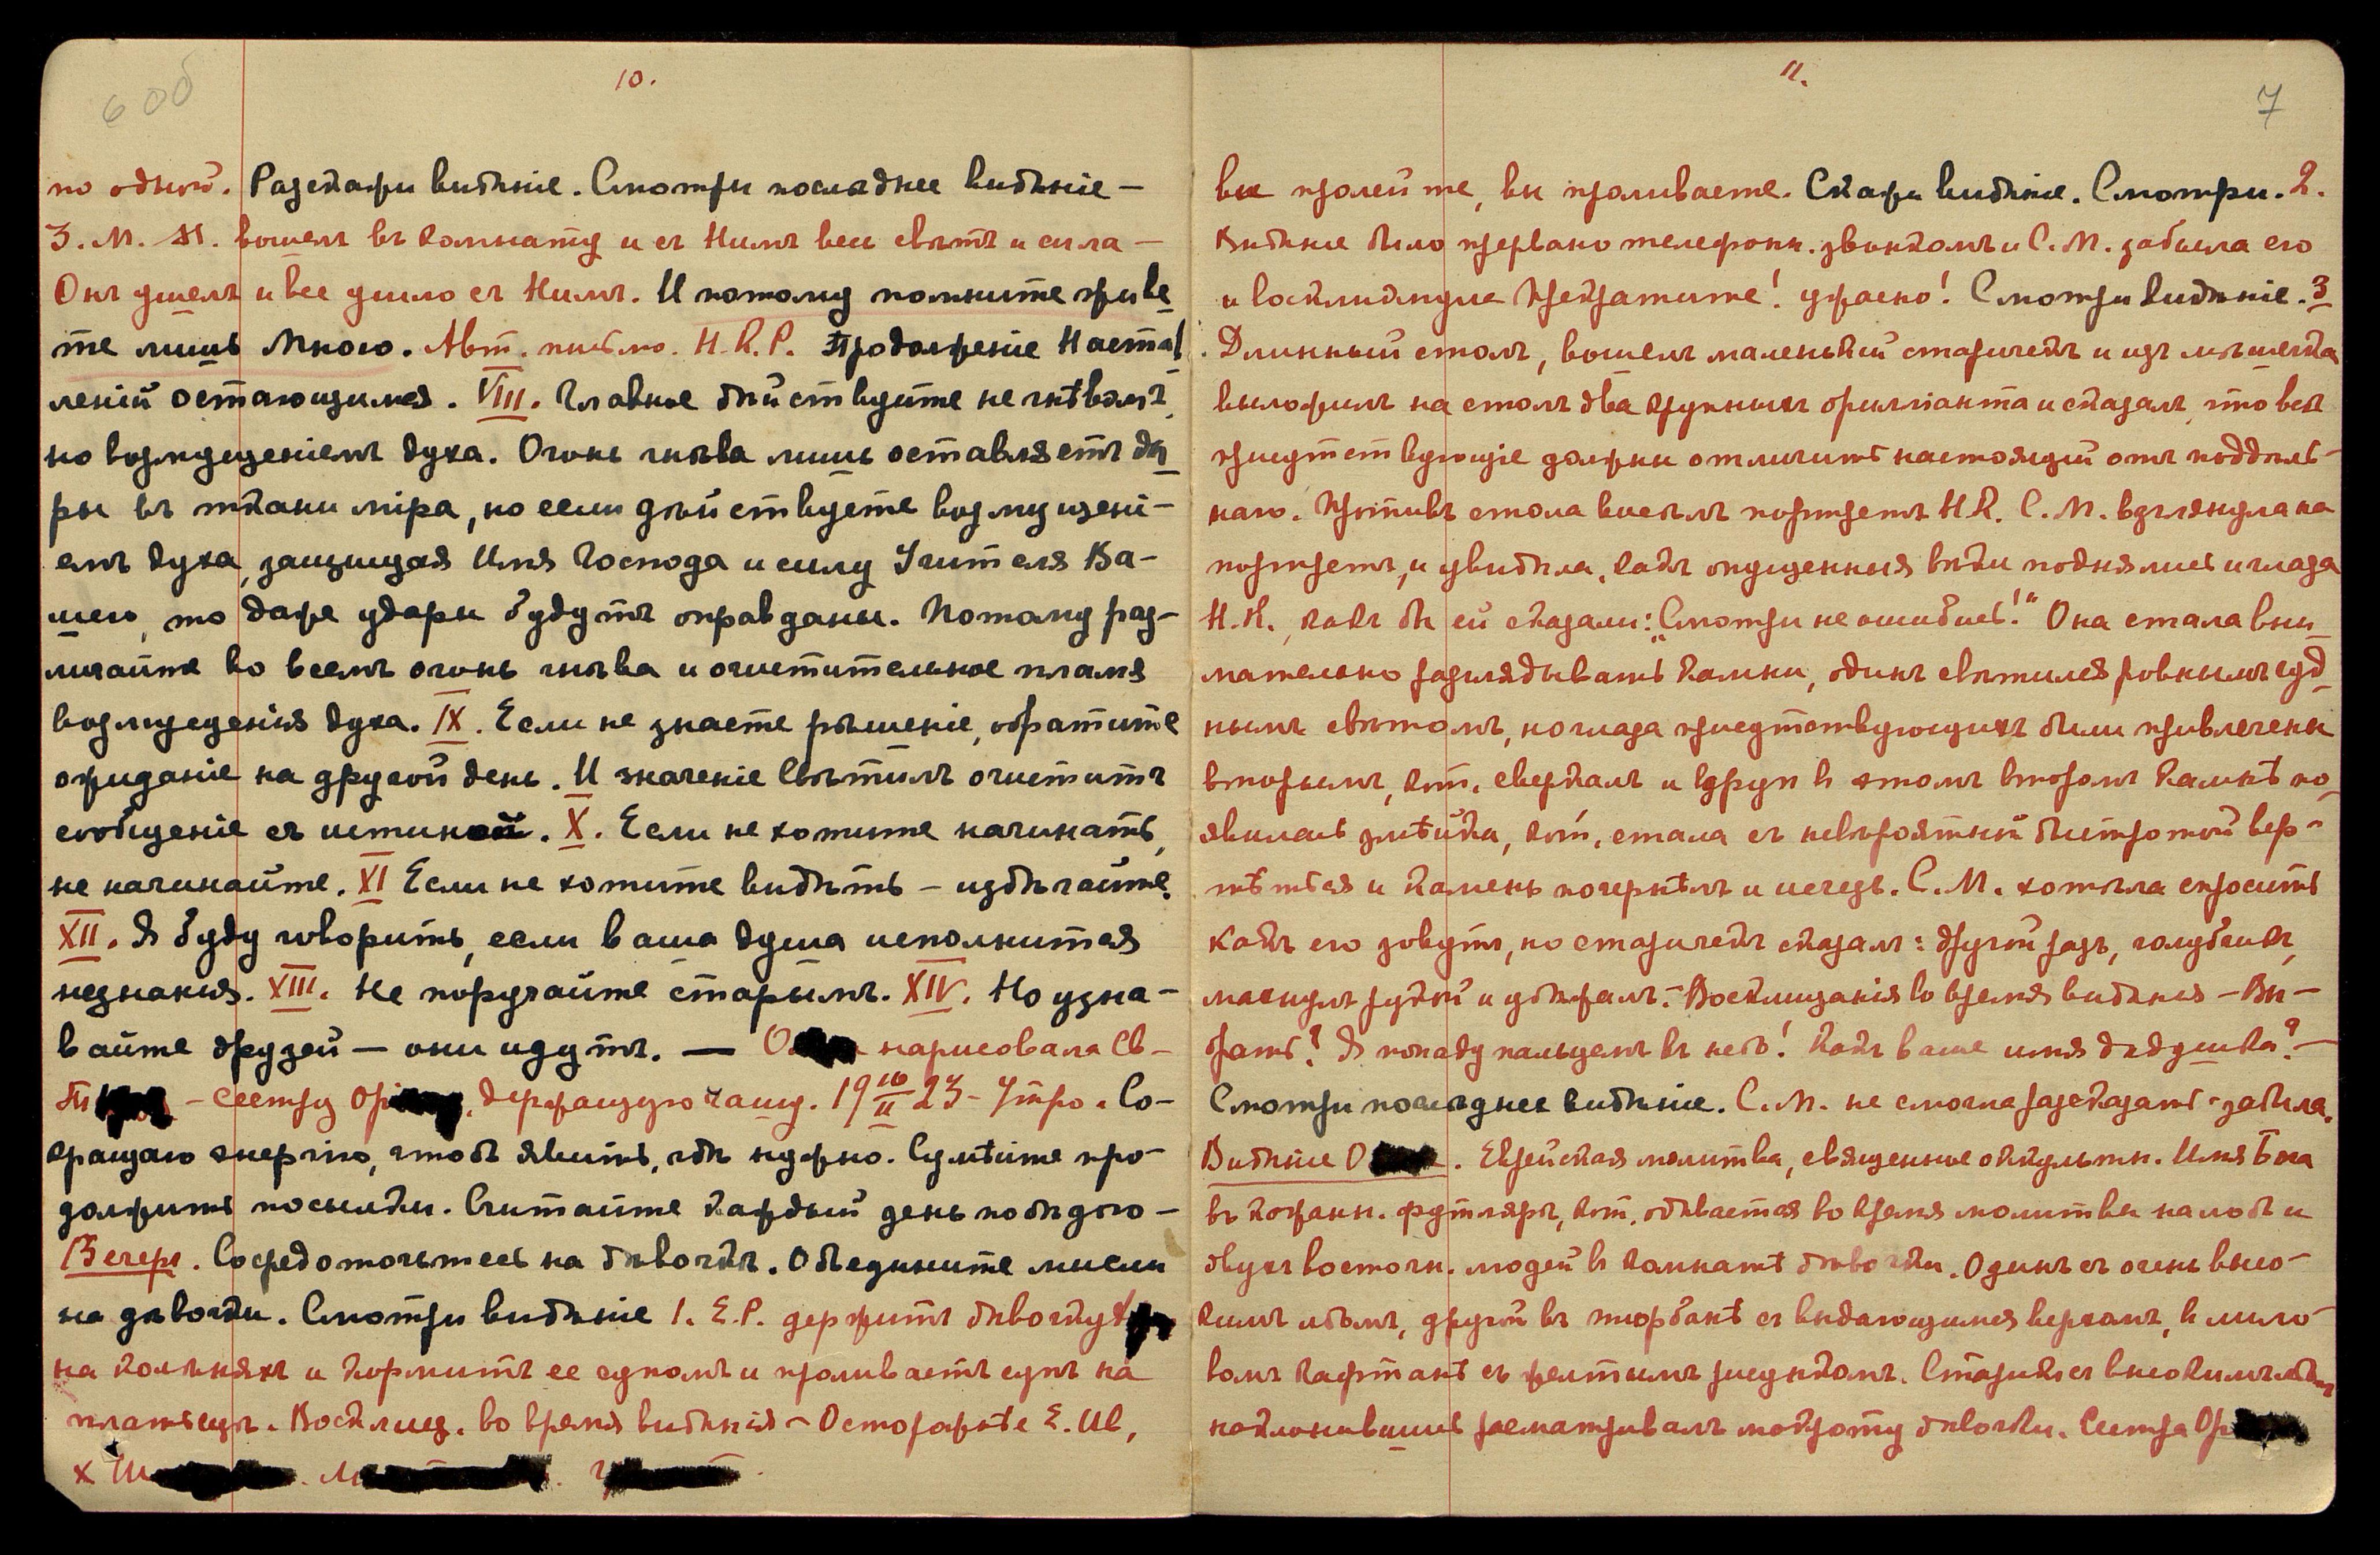 6 об
10.
по одной. Разскажи видѣніе. Смотри послѣднее видѣніе —
З. М. М. вошелъ въ комнату и съ Нимъ весь свѣтъ и сила —
Онъ ушелъ и все ушло съ Нимъ. И потому помните приве
те лишь Много. Авт. письмо. Н. К. Р. Продолженіе Настав
леній остающимся. VIII. Главное дѣйствуйте не гнѣвомъ,
но возмущеніемъ духа. Огонь гнѣва лишь оставляетъ ды
ры въ ткани міра, но если дѣйствуете возмущені-
емъ духа, защищая Имя Господа и силу Учителя Ва-
шего, то даже удары будутъ оправданы. Потому раз-
личайте во всемъ огонь гнѣва и очистительное пламя
возмущенія духа. IX. Если не знаете рѣшеніе, обратите
ожиданіе на другой день. И значеніе Свѣтилъ очиститъ
сообщеніе съ истиной. X. Если не хотите начинать,
не начинайте. XI Если не хотите видѣть — избѣгайте.
XII. Я буду говорить, если ваша душа исполнится
незнанія. XIII. Не поручайте старымъ. XIV. Но узна-
вайте друзей — они идутъ. — О нарисовала Св-
— сестру Ор , держащую чашу. 19 16/II 23 - Утро. Со-
кращаю энергію, чтобъ явить, гдѣ нужно. Сумѣйте про-
должить посылки. Считайте каждый день побѣдою —
Вечеръ. Сосредоточьтесь на дѣвочкѣ. Объедините мысли
на дѣвочки. Смотри видѣніе 1. Е. Р. держитъ дѣвочку х
на колѣняхъ и кормитъ ее супомъ и проливаетъ супъ на
платьице. Восклиц. во время видѣнія — Осторожнѣе Е. Ив,
х Ш М
11.
7
вы пролейте, вы проливаете. Скажи видѣніе. Смотри. 2.
Видѣніе было прервано телефонн. звонкомъ и С. М. забыла его
и воскликнула Прекратите! ужасно! Смотри видѣніе. 3
Длинный столъ, вошелъ маленькій старичекъ и изъ мѣшечка
выложилъ на столъ два крупныхъ брилліанта и сказалъ, что всѣ
присутствующіе должны отличить настоящій отъ поддѣль-
наго. Противъ стола висѣлъ портретъ Н. К. С. М. взглянула на
портретъ, и увидѣла, какъ опущенныя вѣки поднялись и глаза
Н. К., какъ бы ей сказали: „Смотри не ошибись!" Она стала вни
мательно разглядывать камни, одинъ свѣтился ровнымъ чуд
нымъ свѣтомъ, но глаза присутствующихъ были привлечены
вторымъ, кот. сверкалъ и вдругъ въ этомъ второмъ камнѣ по
явилась змѣйка, кот. стала съ невѣроятной быстротой вер-
тѣться и камень почернѣлъ и исчезъ. С. М. хотѣла спросить
какъ его зовутъ, но старичекъ сказалъ: другой разъ, голубчикъ,
махнулъ рукой и убѣжалъ. — Восклицанія во время видѣнія — Вы-
брать? Я попаду пальцемъ въ небо! Какъ ваше имя дѣдушка? —
Смотри послѣднее видѣніе. С. М. не смогла разсказать — забыла.
Видѣніе О . Еврейская молитва, священные оккультн. Имя Бога
въ кожанн. футлярѣ, кот. одѣвается во время молитвы на лобъ и
двухъ восточн. людей въ комнатѣ дѣвочки. Одинъ съ очень высо-
кимъ лбомъ, другой въ тюрбанѣ съ выдающимся верхомъ, въ лило-
вомъ кафтанѣ съ желтымъ рисункомъ. Старикъ съ высокимъ лбомъ
наклонившись разсматривалъ мокроту дѣвочки. Сестра Ор